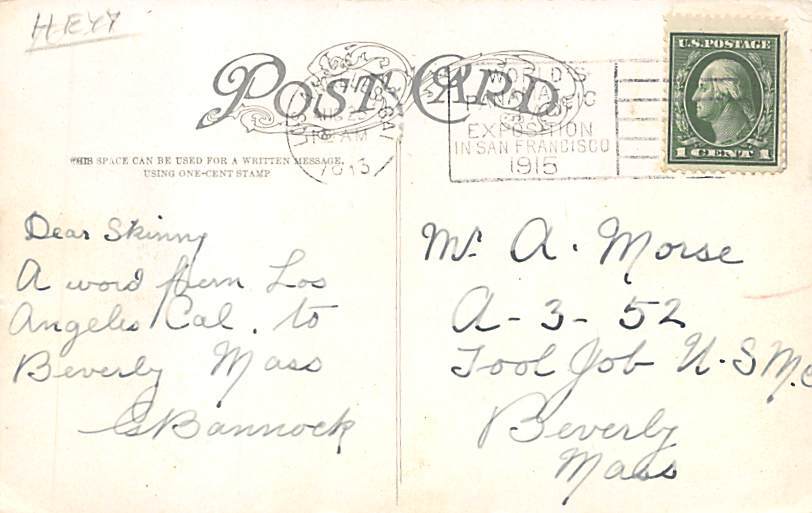 HEYY
POST CARD
WORLD'S
PANAMA PACIFIC
EXPOSITION
IN SAN FRANCISCO
1915
12 AM
1913
U.S. POSTAGE
1 CENT 1
THIS SPACE CAN BE USED FOR A WRITTEN MESSAGE,
USING ONE-CENT STAMP
Dear Skinny
A word from Los
Angeles Cal. to
Beverly Mass
Bannock
Mr. A. Morse
A-3-52
Tool Job U.S.M.C
Beverly
Mass